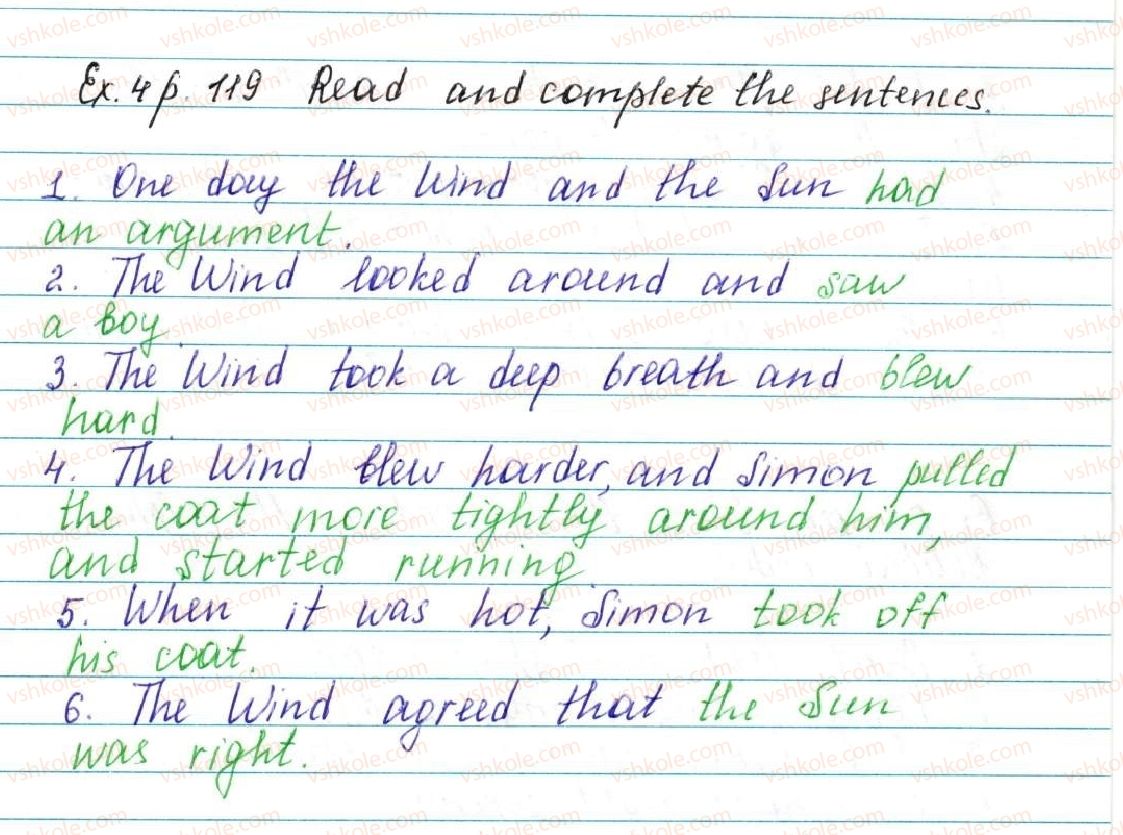 Ex. 4 p. 119 Read and complete the sentences.
1. One day the Wind and the Sun had
an argument.
2. The Wind looked around and saw
a boy.
3. The Wind took a deep breath and blew
hard.
4. The Wind blew harder, and Simon pulled
the coat more tightly around him,
and started running.
5. When it was hot, Simon took off
his coat.
6. The Wind agreed that the Sun
was right.